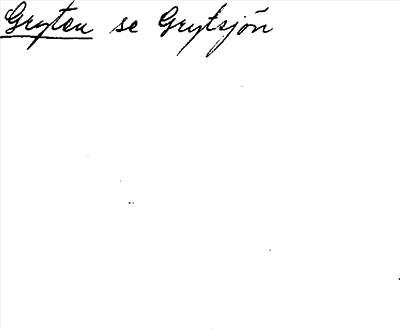 Gryten se Grytsjön